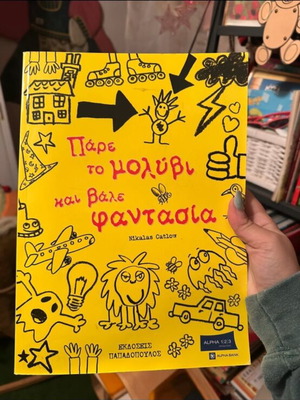 Πάρε
το μολύβι
και βάλε
φαντασία
Nikalas Catlow
ΕΚΔΟΣΕΙΣ
ΠΑΠΑΔΟΠΟΥΛΟΣ
ALPHA 1.2.3
ALPHA BANK